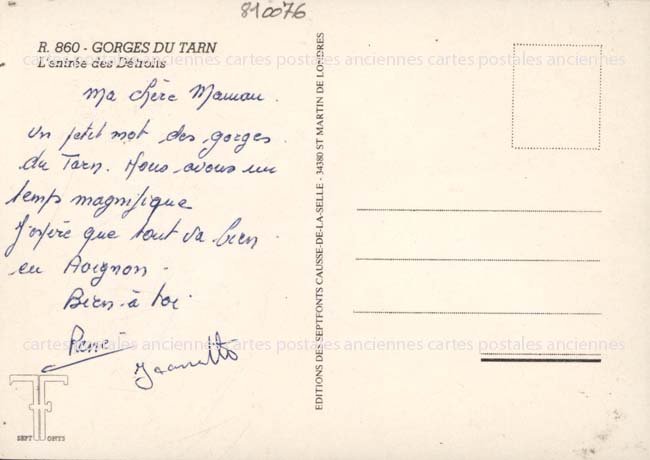 810076
R. 860 - GORGES DU TARN
L'entrée des Détroits
cartes postales anciennes cartes postales anciennes cartes postales anciennes
Ma chère Maman.
Un petit mot des gorges
du Tarn. Nous avons un
temps magnifique
J'espère que tout va bien
en Avignon.
Bien à toi
René
Jeannette
cartes postales anciennes cartes postales anciennes cartes postales anciennes
SEPT FONTS
EDITIONS DES SEPTFONTS CAUSSE-DE-LA-SELLE - 34380 ST MARTIN DE LONDRES